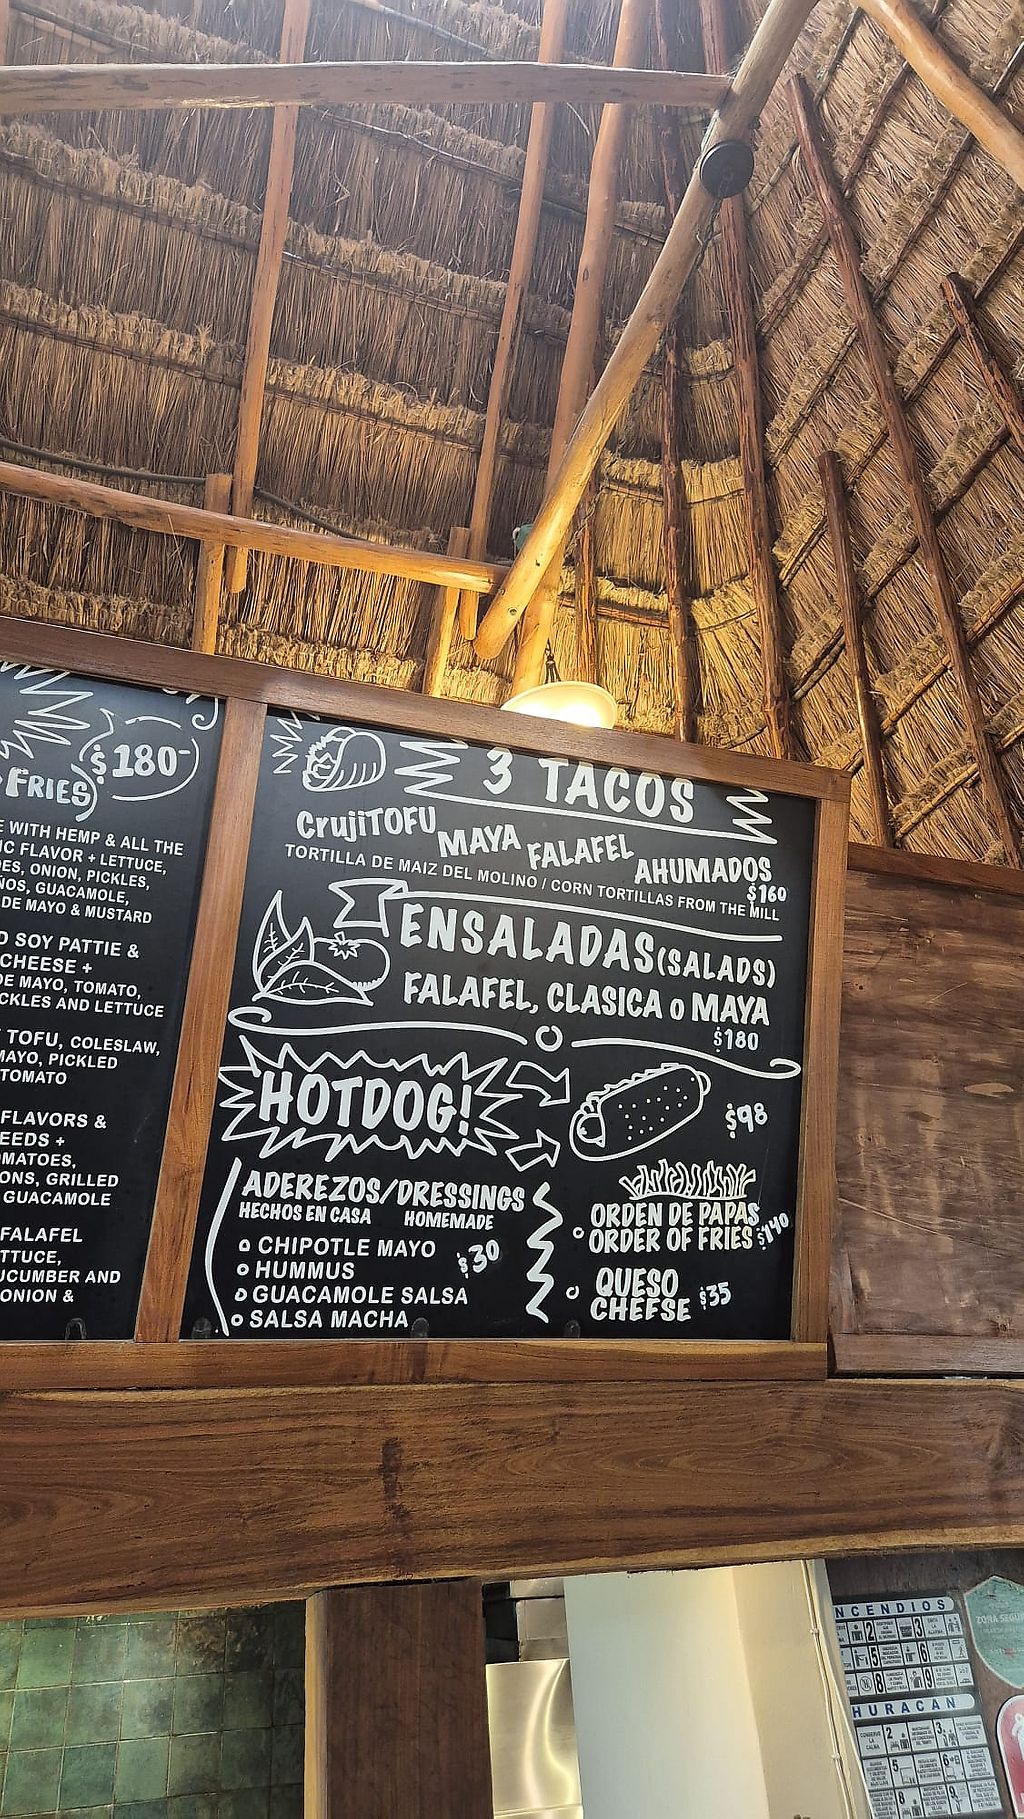 $180-
FRIES
WITH HEMP & ALL THE
FLAVOR + LETTUCE,
ONION, PICKLES,
GUACAMOLE,
DE MAYO & MUSTARD
SOY PATTIE &
CHEESE +
DE MAYO, TOMATO,
AND LETTUCE
TOFU, COLESLAW,
MAYO, PICKLED
TOMATO
FLAVORS &
GRILLED
GUACAMOLE
FALAFEL
AND
ONION &
3 TACOS
CrujiTOFU MAYA FALAFEL AHUMADOS
$160
TORTILLA DE MAIZ DEL MOLINO / CORN TORTILLAS FROM THE MILL
ENSALADAS (SALADS)
FALAFEL, CLASICA o MAYA
$180
HOTDOG!
$98
ADEREZOS/DRESSINGS
HECHOS EN CASA HOMEMADE
CHIPOTLE MAYO
$30
HUMMUS
GUACAMOLE SALSA
SALSA MACHA
ORDEN DE PAPAS
ORDER OF FRIES $140
QUESO
CHEESE $35
HURACAN
CONSERVE LA CALMA